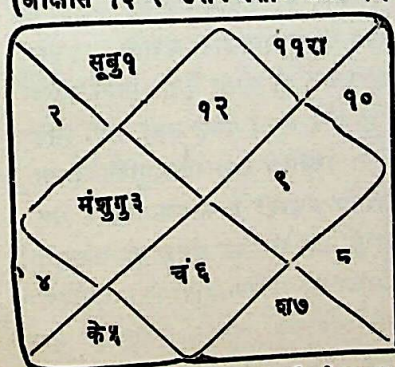 सूबु१
११रा
२
१२
१०
मंशुगु३
९
४
चं ६
८
के५
श७